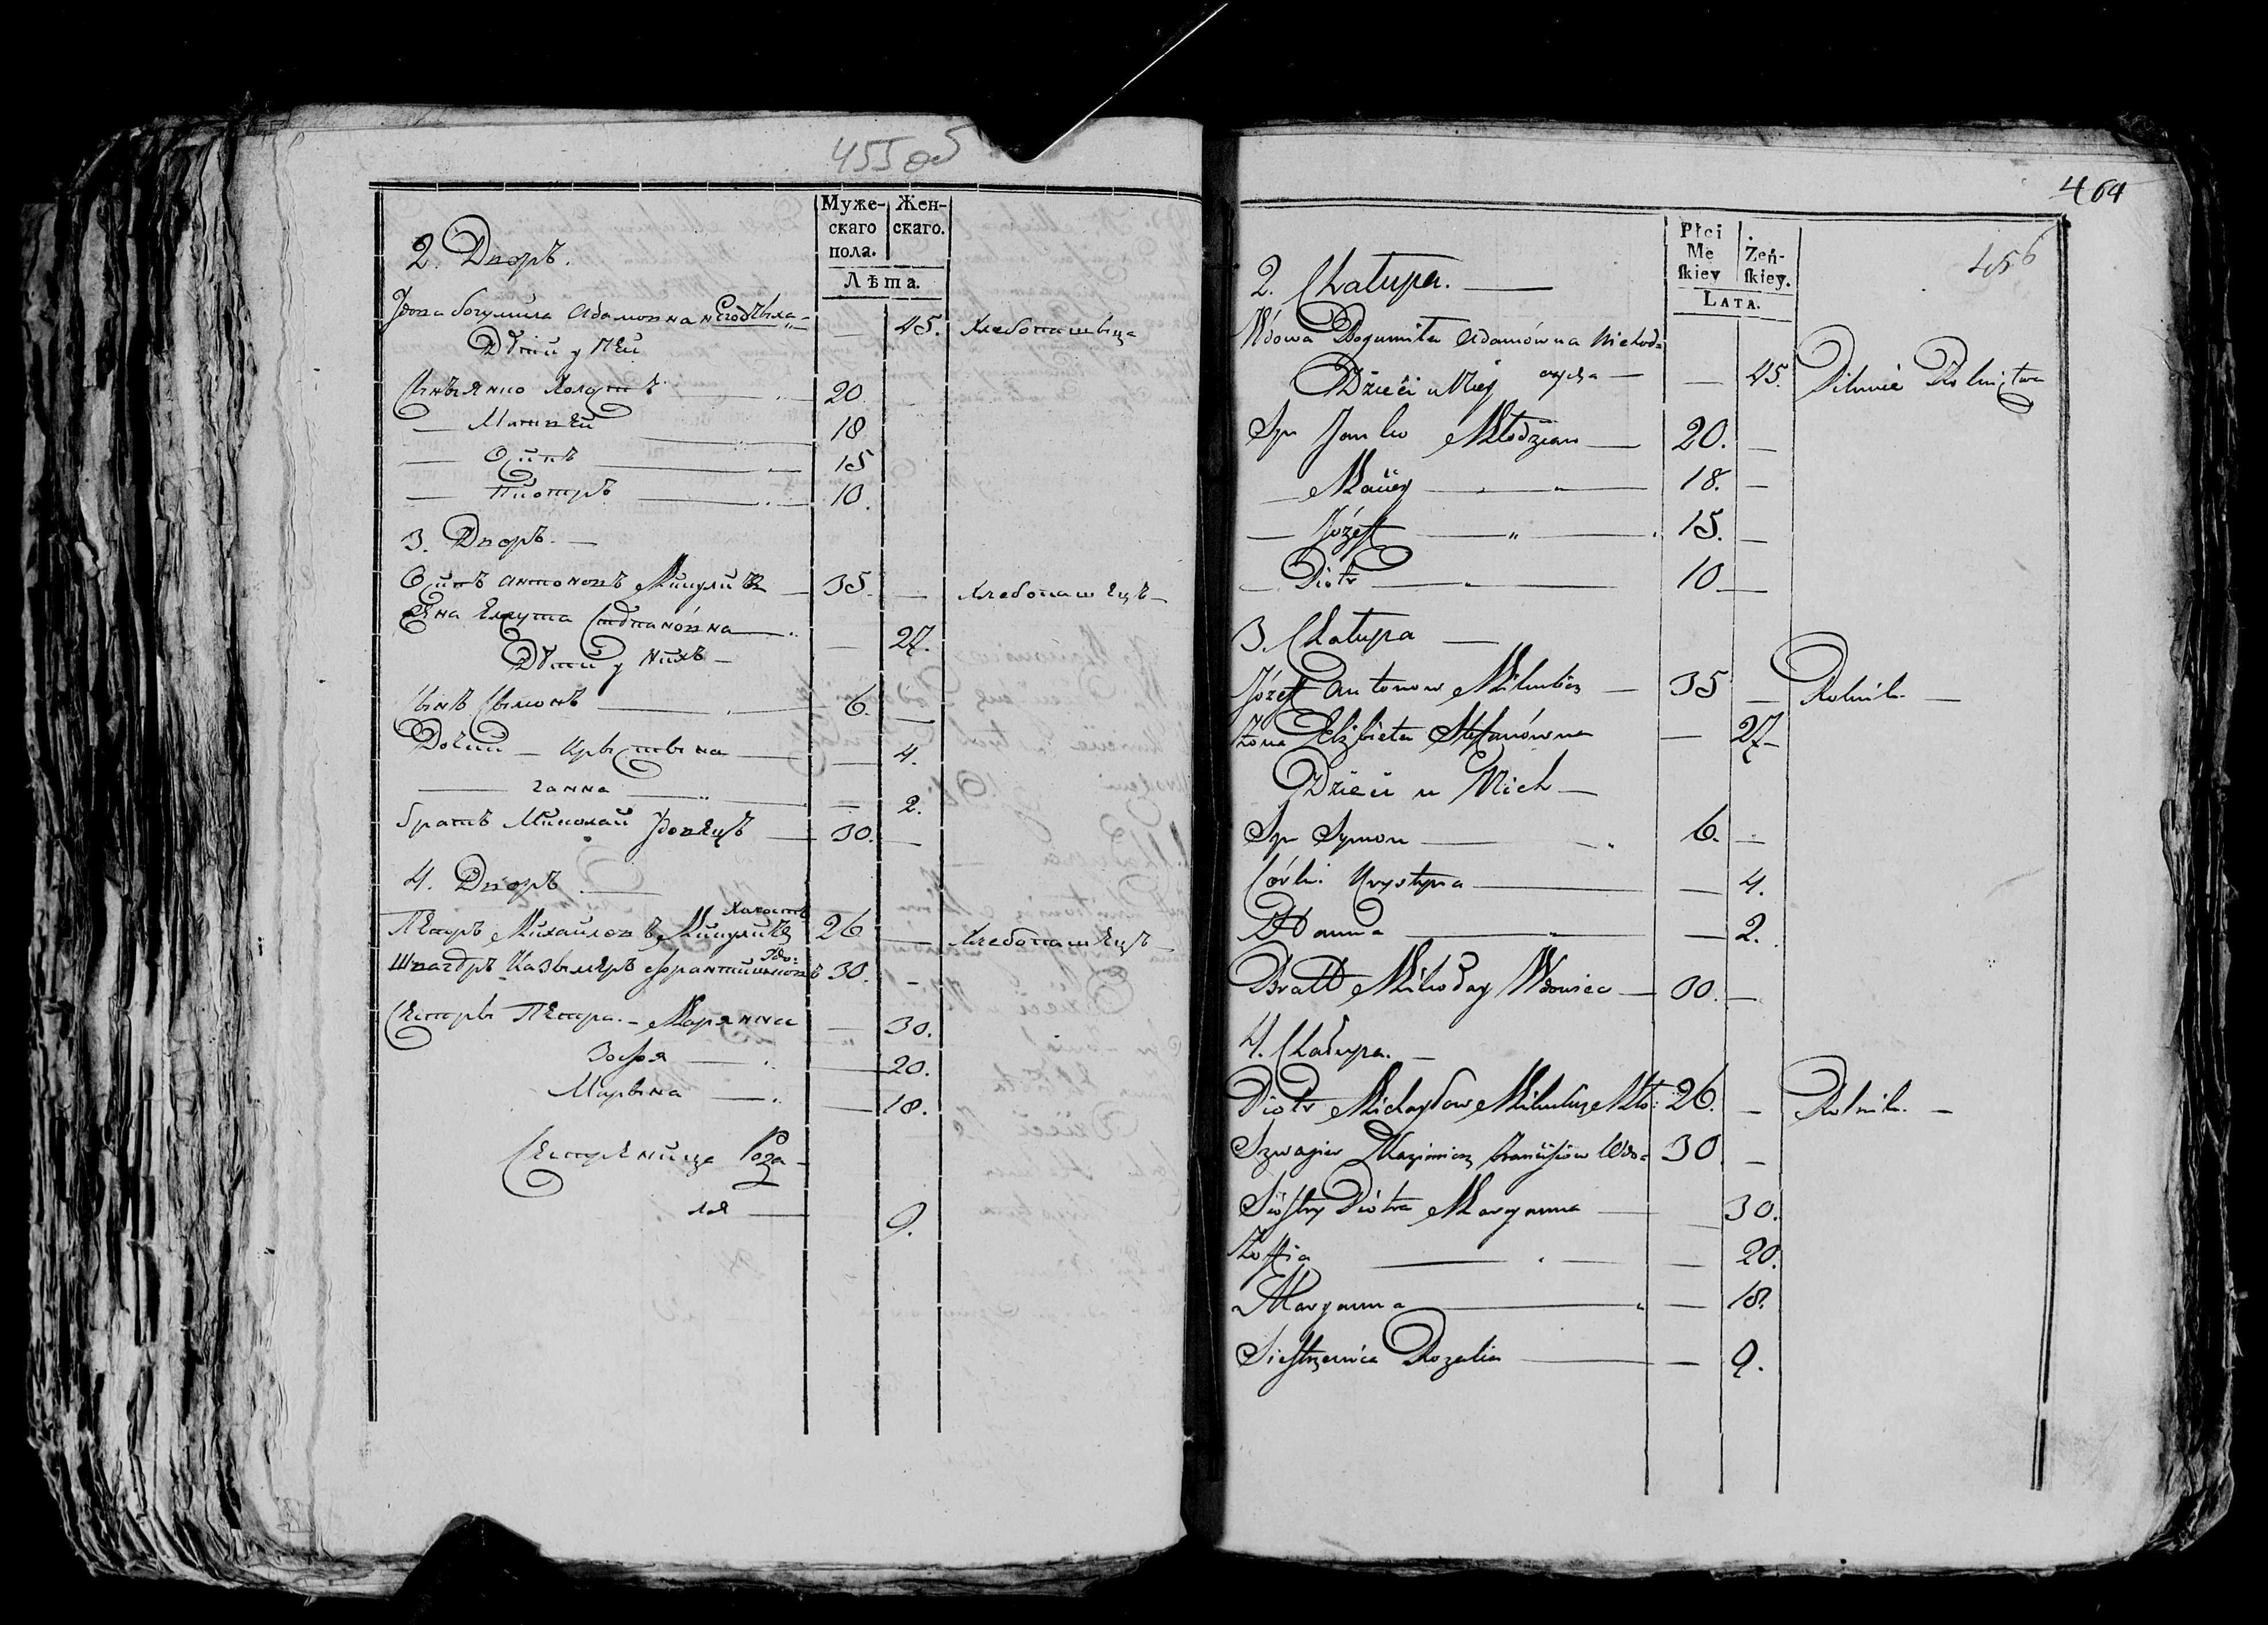 455 об
Муже-
скаго
пола.
Жен-
скаго.
Лѣта.
2. Дворъ.
Вдова богумила Адамовна
45. Хлебопашвца
Дѣти у Ней
Сынъ Янко Холостъ 20.
— Матвей 18
— Осипъ 15
— Пиотръ 10.
3. Дворъ. —
Осипъ Антоновъ Микулич 35. — Хлебопашецъ —
Жена Елжута Стэпановна — 27.
Дѣти у Нихъ —
Сынъ Сымонъ 6. —
Дочки — Крыстына — 4.
— Ганна — 2.
братъ Миколай Вдовецъ — 30. —
4. Дворъ. —
Холостъ
Петръ Михайловъ Микулич 26 — Хлебопашецъ —
Вдо:
Швагдръ Казымеръ Франтишковъ 30. —
Сестры Петра. — Марянна — 30.
Зофя — 20.
Марьяна — 18.
Сестреница Роза-
лія — 9.
464
456
Płci
Mę
skiey
Żeń-
skiey.
LATA.
2. Chałupa. —
Wdowa Bogumiła Adamówna
Dzieci u Niey — 45. Pilnuie Rolnictwa
Syn Janko Młodzian — 20. —
— Maciey — 18. —
— Józeff — 15. —
— Piotr — 10 —
3. Chałupa —
Józeff Antonow Mikulicz — 35 — Rolnik —
Żona Elżbieta Steffanówna — 27 —
Dzieci u Nich —
Syn Symon — 6. —
Córki Krystyna — 4.
Hanna — 2.
Bratt Mikołay Wdowiec — 30. —
4. Chałupa. —
Piotr Michayłow Mikulicz Mło: 26. — Rolnik. —
Szwagier Kazimierz Franciszkow Wdo= 30 —
Siostry Piotra Maryanna — 30.
Zoffia — 20.
Maryanna — 18.
Siestrzenica Rozalia — 9.